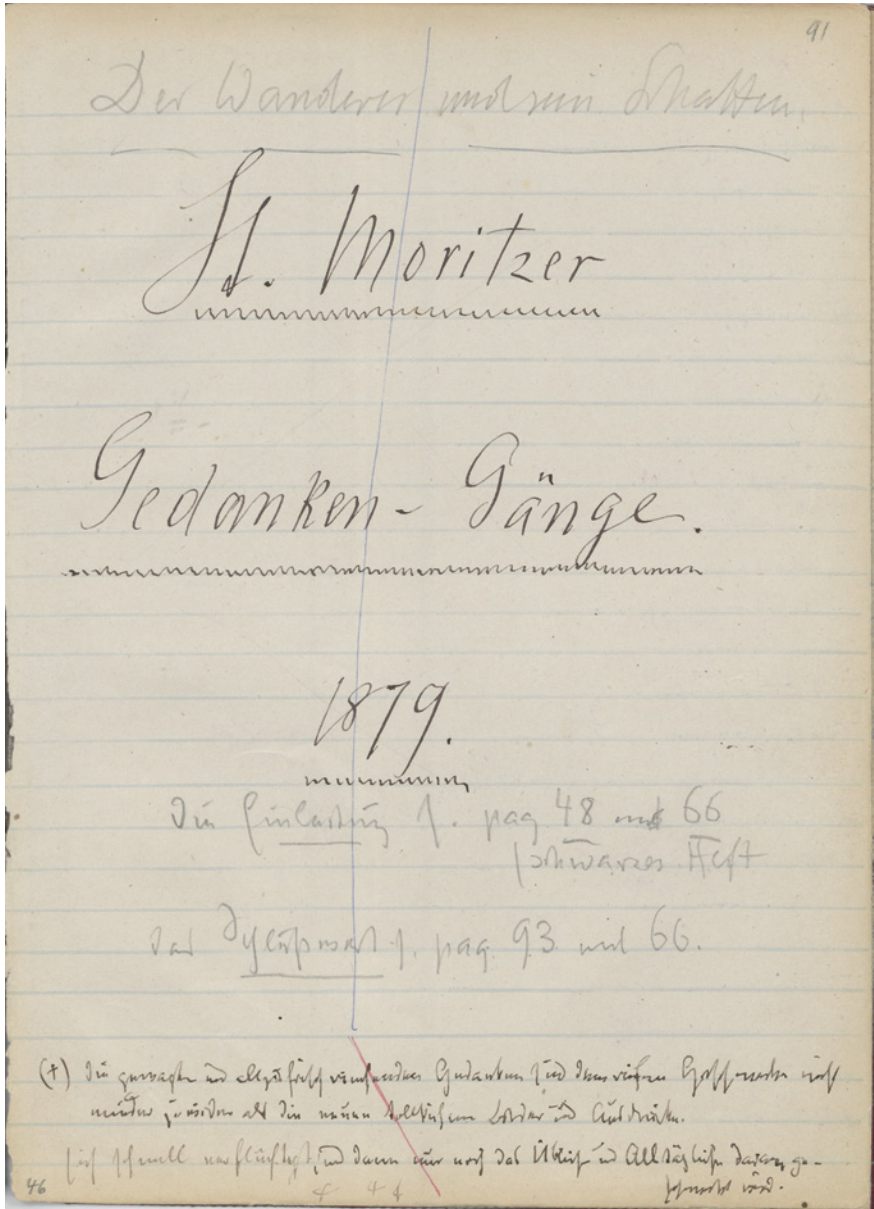 91
Der Wanderer und sein Schatten.
St. Moritzer
Gedanken-Gänge.
1879.
Die Einleitung s. pag 48 und 66
schwarzes Heft
das Schlußwort s. pag. 93 und 66.
(+) Die gewagten und allzufrisch Gedanken sind dem reifen Geschmacke nicht
minder zuwider als die neuen tollkühnen Bilder und Ausdrücke.
sich schnell verflüchtigt, und dann nur noch das Übliche und Alltägliche daran ge-
schmeckt wird.
46